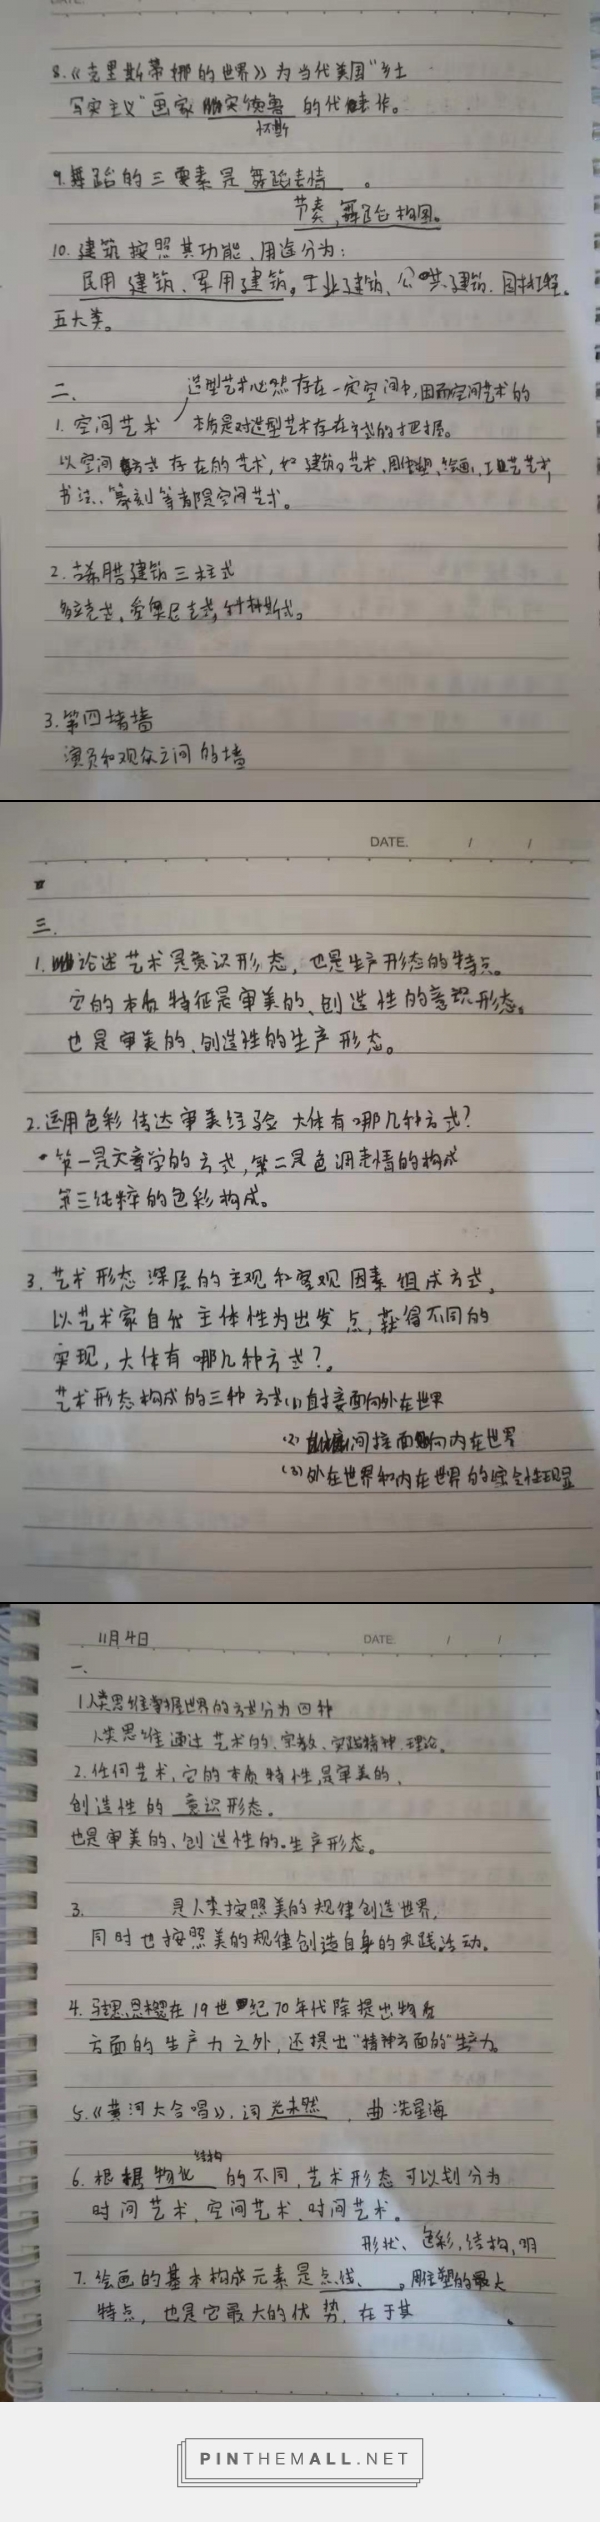 DATE.
8.《克里斯蒂娜的世界》为当代美国"乡土
写实主义"画家 怀斯 的代表作。
9.舞蹈的三要素是 舞蹈表情 。
节奏,舞蹈构图。
10. 建筑按照其功能、用途分为:
民用建筑、军用建筑。工业建筑、公共建筑、园林工程。
五大类。
二、
造型艺术必然存在一定空间中,因而空间艺术的
1. 空间艺术
本质是对造型艺术存在方式的把握。
以空间方式存在的艺术,如建筑艺术、雕塑、绘画、工艺艺术,
书法、篆刻等都是空间艺术。
2. 古希腊建筑三柱式
多立克式,爱奥尼克式,科林斯式。
3. 第四堵墙
演员和观众之间的墙
DATE. / /
三.
1. 论述艺术是意识形态,也是生产形态的特点。
它的本质特征是审美的、创造性的意识形态。
也是审美的、创造性的生产形态。
2.运用色彩传达审美经验大体有哪几种方式?
第一是文章学的方式,第二是色调表情的构成
第三纯粹的色彩构成。
3. 艺术形态深层的主观和客观因素组成方式,
以艺术家自我主体性为出发点,获得不同的
实现,大体有哪几种方式?。
艺术形态构成的三种方式(1)直接面向外在世界
(2) 间接面向内在世界
(3)外在世界和内在世界的综合性现显
11月4日 DATE. / /
一、
1.人类思维掌握世界的方式分为四种
人类思维通过艺术的、宗教、实践精神、理论。
2.任何艺术,它的本质特性,是审美的,
创造性的 意识形态。
也是审美的、创造性的.生产形态。
3. 是人类按照美的规律创造世界,
同时也按照美的规律创造自身的实践活动。
4. 马克思,恩格斯在19世纪70年代除提出物质
方面的生产力之外,还提出"精神方面的"生产力。
5.《黄河大合唱》,词 光未然 ,曲 冼星海
结构
6. 根据 物化 的不同,艺术形态可以划分为
时间艺术,空间艺术,时间艺术。
形状、色彩,结构,明
7. 绘画的基本构成元素是 点线、 。雕塑的最大
特点,也是它最大的优势,在于其 。
PINTHEMALL.NET